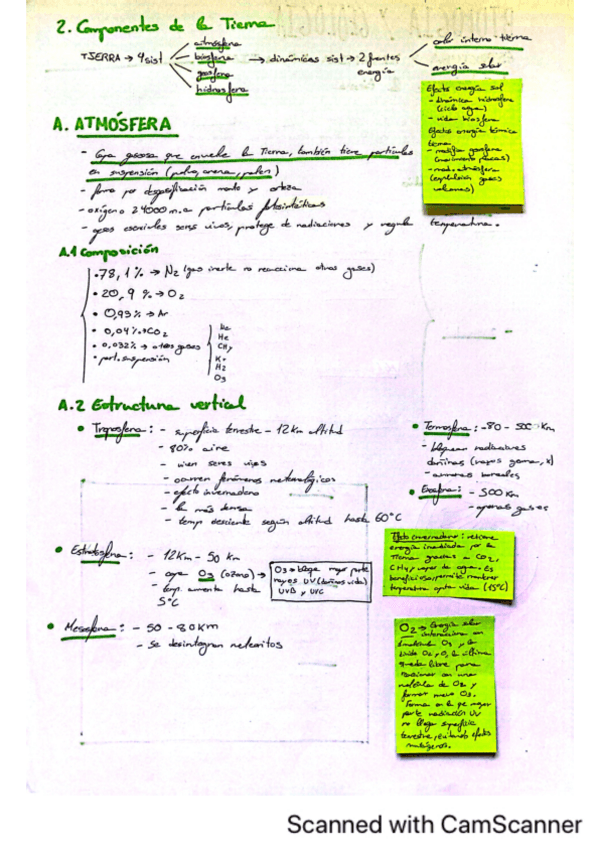 2. Componentes de la Tierra
TIERRA → 4 sist
atmósfera
biosfera
geosfera
hidrosfera
→ dinámicas sist → 2 fuentes
energía
calor interno tierra
energía solar
Efecto energía sol
- dinámica hidrosfera
(ciclo agua)
- vida biosfera
Efectos energía térmica
terma
- modifica geosfera
(movimiento placas)
- mod. atmósfera
(expulsión gases
volcanes)
A. ATMÓSFERA
- Capa gaseosa que envuelve la Tierra, también tiene partículas
en suspensión (polvo, arena, polen)
- formó por desgasificación manto y corteza
- oxígeno 2 4000 m.a partículas fotosintéticas
- gases esenciales seres vivos, protege de radiaciones y regula temperatura.
A.1 Composición
• 78,1% → N₂ (gas inerte no reacciona otros gases)
• 20,9 % → O₂
• 0,93% → Ar
• 0,04% → CO₂
• 0,032% → otros gases
• part. suspensión
Ne
He
CH₄
Kr
H₂
O₃
A.2 Estructura vertical
• Troposfera: - superficie terrestre - 12 Km altitud
- 80% aire
- viven seres vivos
- ocurren fenómenos meteorológicos
- efecto invernadero
- la más densa
- temp. desciende según altitud hasta 60°C
• Termosfera: -80 - 500 Km
- bloquean radiaciones
dañinas (rayos gama, x)
- auroras boreales
• Exosfera: - 500 Km
- apenas gases
• Estratosfera: - 12Km - 50 Km
- capa O₃ (ozono) →
O₃ → bloquea mayor parte
rayos UV (dañinos vida)
UVB y UVC
- temp. aumenta hasta
5°C
Efecto invernadero: retiene
energía irradiada por la
Tierra gracias a CO₂,
CH₄, vapor de agua. Es
beneficioso, permite mantener
temperatura apta vida (15°C)
• Mesosfera: - 50 - 80Km
- Se desintegran meteoritos
O₂ → Energía solar
interacciona con
molécula O₃ y la
divide O₂ y O, la última
queda libre para
reaccionar con una
molécula de O₂ y
formar nueva O₃.
Forma en la que mayor
parte radiación UV
no llega superficie
terrestre, evitando efectos
mutágenos.
Scanned with CamScanner